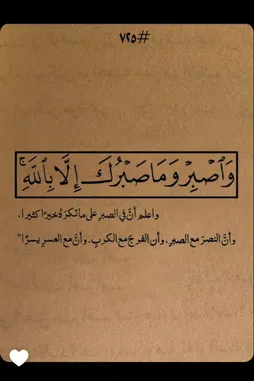 #٧٢٥
وَٱصْبِرْ وَمَا صَبْرُكَ إِلَّا بِٱللَّهِ ۚ
واعلم أنَّ في الصبر على ما تكرَهُ خيرًا كثيرا،
وأنَّ النصرَ مع الصبرِ، وأن الفرجَ مع الكربِ، وأنَّ مع العسرِ يسرًا"